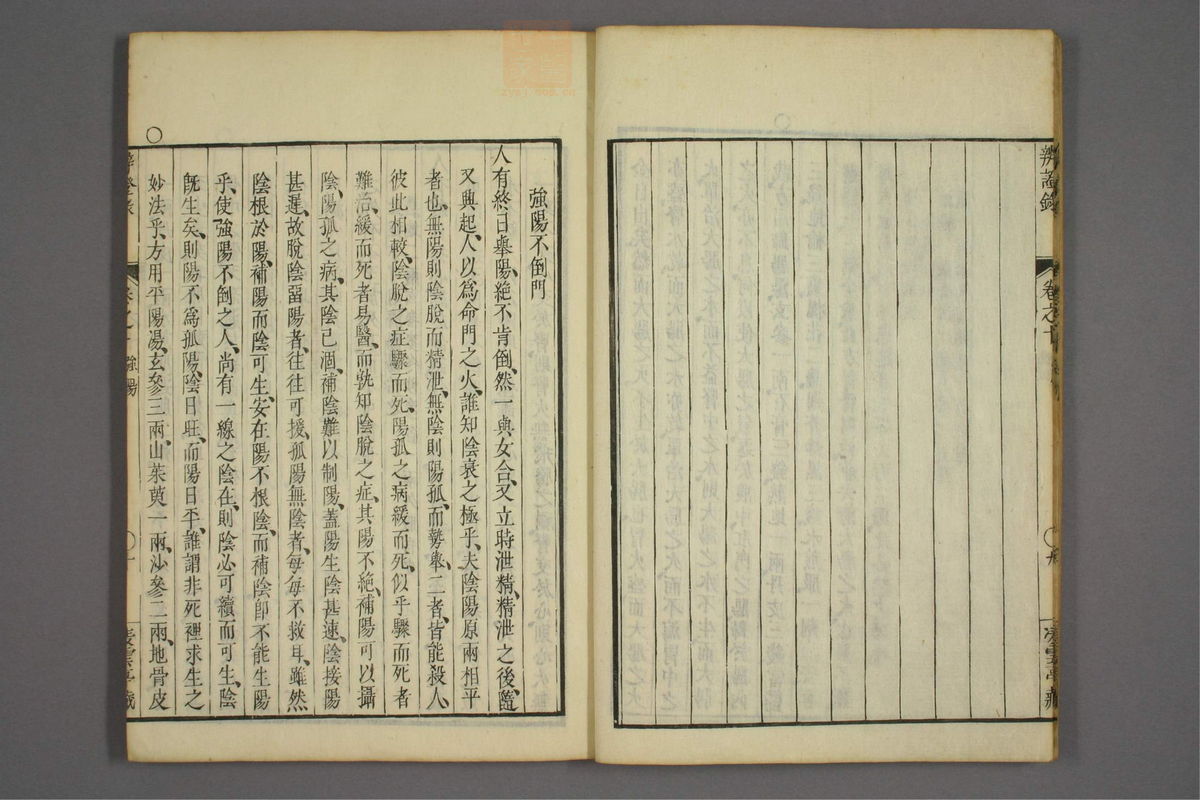 辨證錄
卷之十
凌雲亭藏
強陽不倒門
人有終日舉陽、絶不肯倒、然一與女合、又立時泄精、精泄之後、隨
又興起、人以爲命門之火、誰知陰衰之極乎、夫陰陽原兩相平
者也、無陽則陰脫而精泄、無陰則陽孤、而勢舉、二者、皆能殺人、
彼此相較、陰脫之症驟而死、陽孤之病緩而死、似乎驟而死者
難治、緩而死者易醫、而孰知陰脫之症、其陽不絶、補陽可以攝
陰、陽孤之病、其陰已涸、補陰難以制陽、蓋陽生陰甚速、陰接陽
甚遲、故脫陰畱陽者、往往可援、孤陽無陰者、每每不救耳、雖然
陰根於陽、補陽而陰可生、安在陽不根陰、而補陰卽不能生陽
乎、使強陽不倒之人、尚有一線之陰在、則陰必可續而可生、陰
旣生矣、則陽不爲孤陽、陰日旺、而陽日平、誰謂非死裡求生之
妙法乎、方用平陽湯、玄參三兩、山茱萸一兩、沙參二兩、地骨皮
強陽